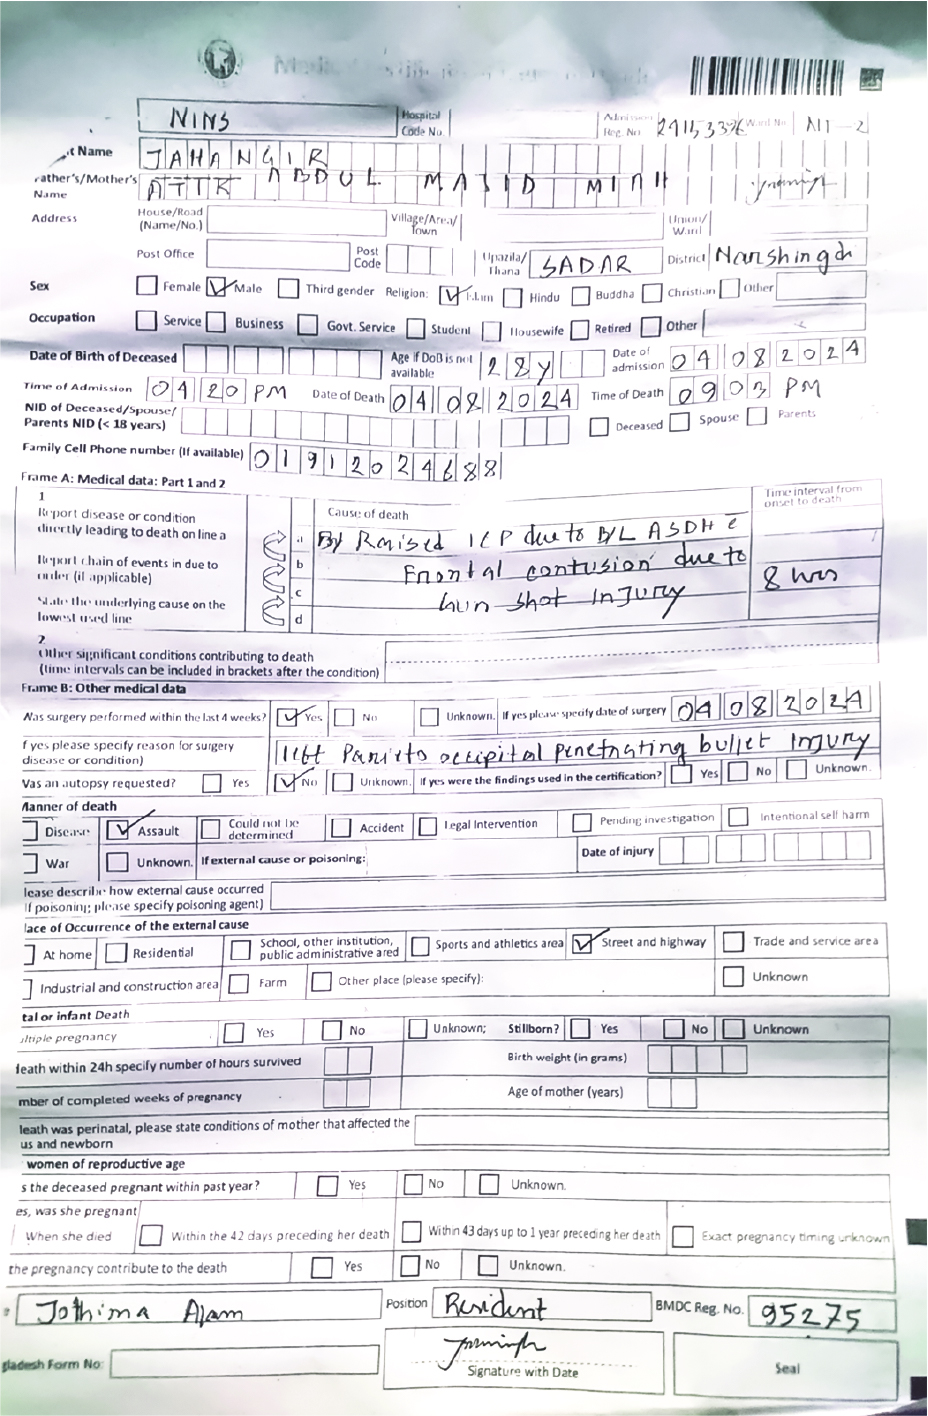 NINS Hospital Code No. Admission Reg. No Ward No
t Name JAHANGIR
Father's/Mother's Name ABDUL MAJID MIAH
Address House/Road (Name/No.) Village/Area/ Town Union/ Ward
Post Office Post Code Upazila/ Thana SADAR District Narshingdi
Sex Female Male Third gender Religion: Islam Hindu Buddha Christian Other
Occupation Service Business Govt. Service Student Housewife Retired Other
Date of Birth of Deceased Age if DoB is not available 28y Date of admission 04 08 2024
Time of Admission 04 20 PM Date of Death 04 08 2024 Time of Death 09 03 PM
NID of Deceased/Spouse/ Parents NID (< 18 years) Deceased Spouse Parents
Family Cell Phone number (If available) 01912024688
Frame A: Medical data: Part 1 and 2
1 Cause of death Time interval from onset to death
Report disease or condition directly leading to death on line a
a By Raised ICP due to B/L ASDH c̄
Report chain of events in due to order (if applicable)
b Frontal contusion due to
c Gun shot Injury 8 hrs
State the underlying cause on the lowest used line
d
2
Other significant conditions contributing to death
(time intervals can be included in brackets after the condition)
Frame B: Other medical data
Was surgery performed within the last 4 weeks? Yes No Unknown. If yes please specify date of surgery 04 08 2024
f yes please specify reason for surgery disease or condition) left Parieto occipital penetrating bullet injury
Was an autopsy requested? Yes No Unknown. If yes were the findings used in the certification? Yes No Unknown.
Manner of death
Disease Assault Could not be determined Accident Legal Intervention Pending investigation Intentional self harm
War Unknown. If external cause or poisoning: Date of injury
lease describe how external cause occurred
If poisoning; please specify poisoning agent)
lace of Occurrence of the external cause
At home Residential School, other institution, public administrative ared Sports and athletics area Street and highway Trade and service area
Industrial and construction area Farm Other place (please specify): Unknown
tal or infant Death
ultiple pregnancy Yes No Unknown; Stillborn? Yes No Unknown
death within 24h specify number of hours survived Birth weight (in grams)
mber of completed weeks of pregnancy Age of mother (years)
leath was perinatal, please state conditions of mother that affected the
us and newborn
women of reproductive age
s the deceased pregnant within past year? Yes No Unknown.
es, was she pregnant
When she died Within the 42 days preceding her death Within 43 days up to 1 year preceding her death Exact pregnancy timing unknown
the pregnancy contribute to the death Yes No Unknown.
Position Resident BMDC Reg. No. 95275
gladesh Form No: Signature with Date Seal